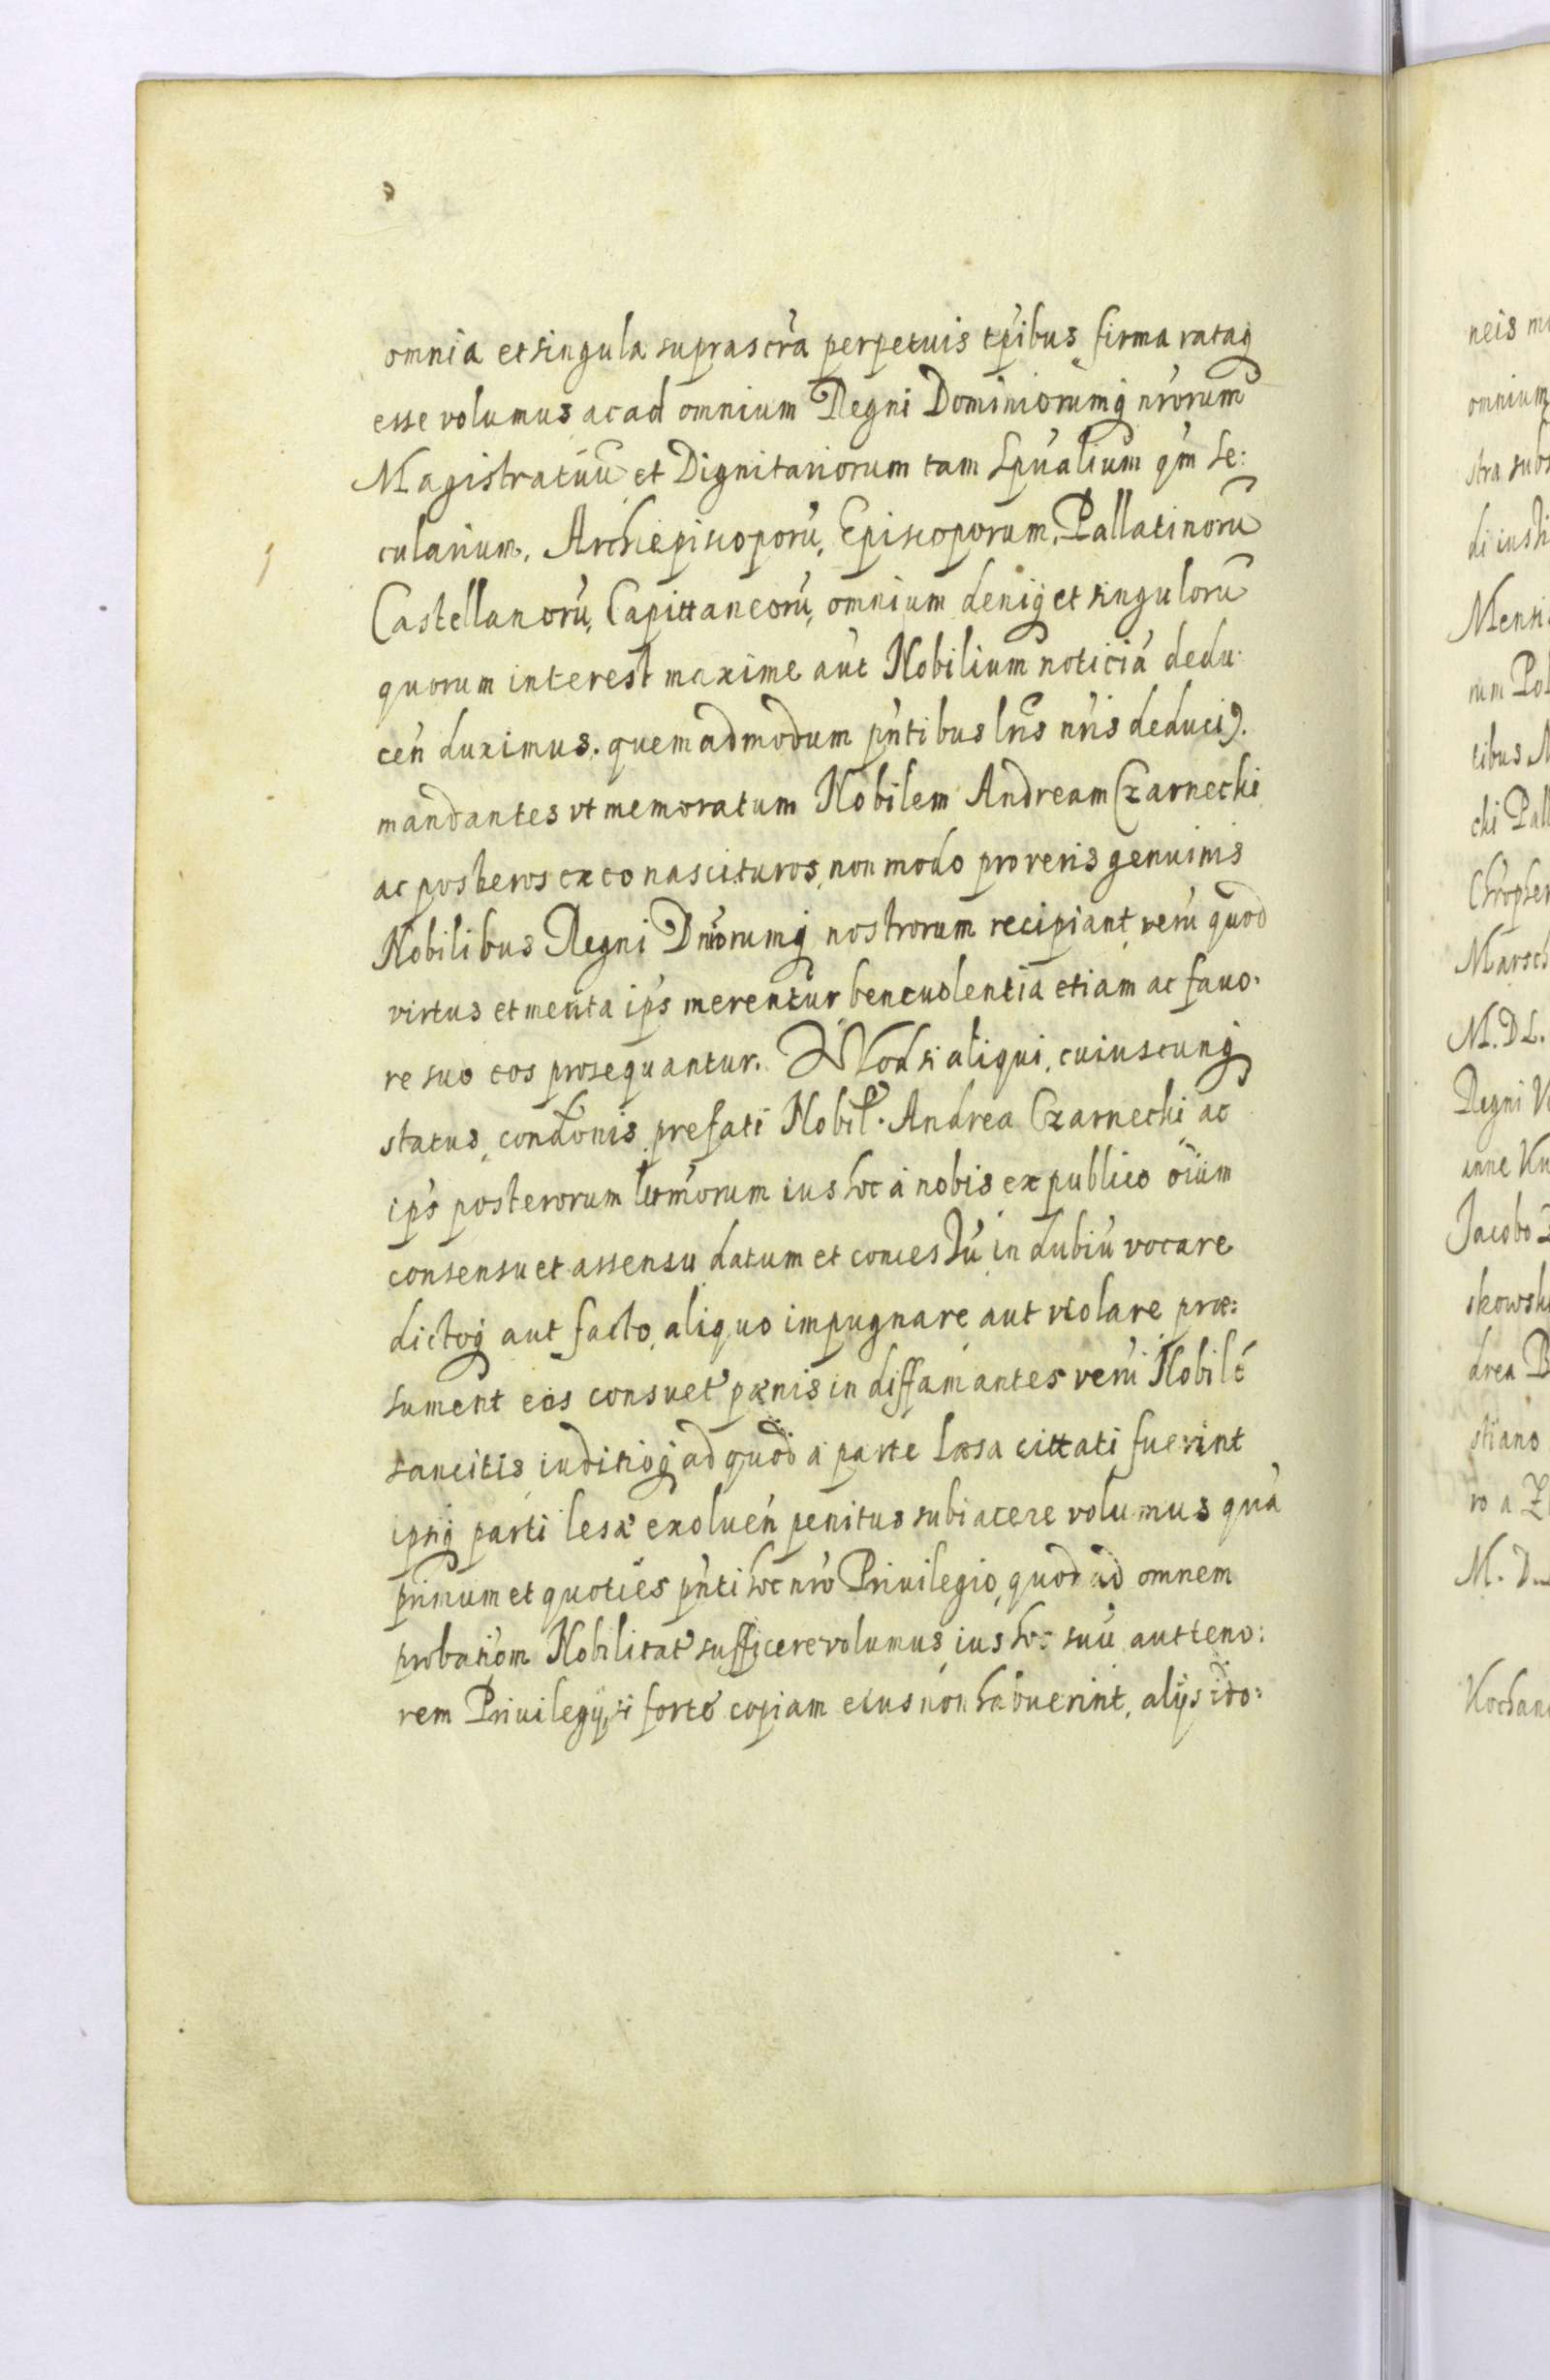 omnia et singula suprascr̃a perpetuis tp̃ibus firma rataq
esse volumus ac ad omnium Regni Dominiorumq nr̃orum
Magistratuũ et Dignitariorum tam Spũalium qm̃ se:
cularium, Archiepiscoporũ, Episcoporum, Pallatinorũ
Castellanorũ, Capittaneorũ, omnium deniq et singulorũ
quorum interest maxime aũt Nobilium noticiã dedu:
ceñ duximus. quemadmodum pñtibus lr̃is nr̃is deduci).
mandantes vt memoratum Nobilem Andream Czarnecki
ac posteros ex eo nascituros, non modo pro veris genuinis
Nobilibus Regni Dñiorumq nostrorum recipiant, verũ quod
virtus et merita ip̃s merentur beneuolentia etiam ac fauo:
re suo eos prosequantur. Quod si aliqui, cuiuscunq
status, condõnis prefati Nobil. Andrea Czarnecki ac
ip̃s posterorum ius hoc á nobis ex publico oĩum
consensu et assensu datum et concessũ in dubiũ vocare
dictoq aut facto aliquo impugnare aut violare præ:
sument eos consuet pænis in diffamantes verũ Nobilẽ
sancitis iuditioq ad quod á parte læsa cittati fuerint
ipsiq parti lesæ exolueñ penitus subiacere volumus quã
primum et quoties pñti hoc nr̃o Priuilegio, quod ad omnem
probatiõm Nobilitat sufficere volumus, ius hoc suũ aut teno:
rem Priuilegÿ, si forte copiam eius non habuerint, alÿs ido:
neis
omnium
stra
Menti
rum
tibus
M. D L.
Regni
Jacobo
drea
M. D.